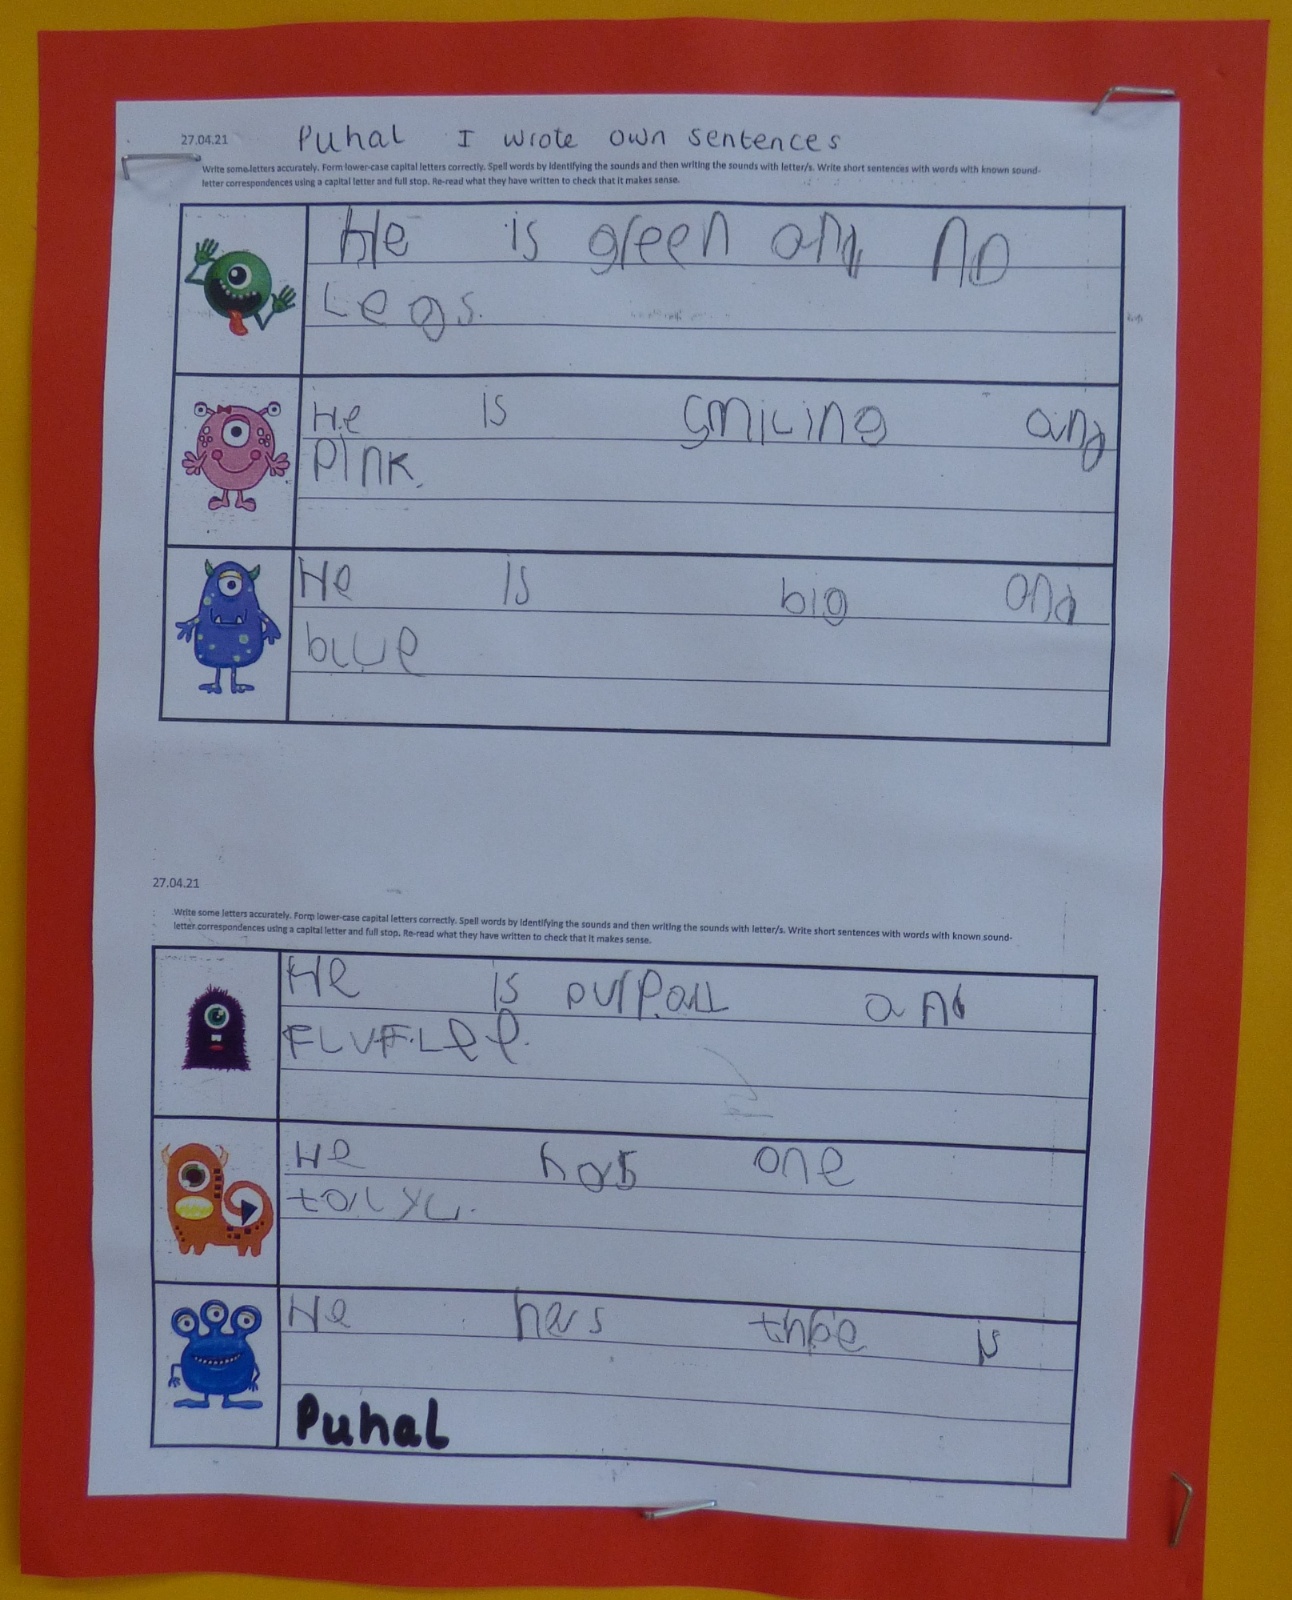 27.04.21 Puhal I wrote own sentences
Write some letters accurately. Form lower-case capital letters correctly. Spell words by identifying the sounds and then writing the sounds with letter/s. Write short sentences with words with known sound-
letter correspondences using a capital letter and full stop. Re-read what they have written to check that it makes sense.
He is green and no
Legs.
He is smiling and
Pink.
He is big and
blue
27.04.21
Write some letters accurately. Form lower-case capital letters correctly. Spell words by identifying the sounds and then writing the sounds with letter/s. Write short sentences with words with known sound-
letter correspondences using a capital letter and full stop. Re-read what they have written to check that it makes sense.
He is purpall and
FLUFLee.
He has one
He has
Puhal